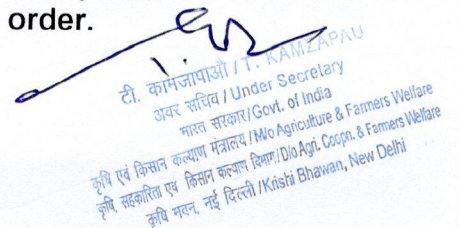 order.
टी. कामजापाओ / T. KAMZAPAU
अवर सचिव / Under Secretary
भारत सरकार/Govt. of India
कृषि एवं किसान कल्याण मंत्रालय / M/o Agriculture & Farmers Welfare
कृषि, सहकारिता एवं किसान कल्याण विभाग/D/o Agri. Coopn. & Farmers Welfare
कृषि भवन, नई दिल्ली /Krishi Bhawan, New Delhi